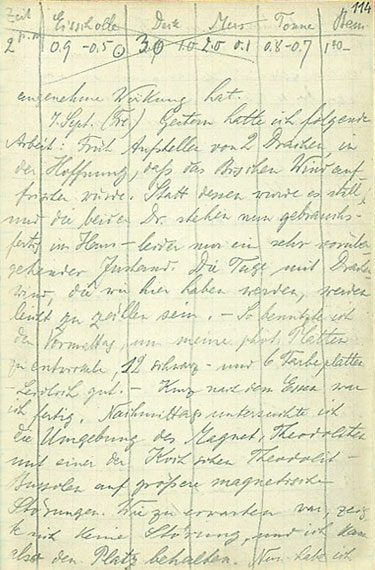 114
Zeit Eisscholle Dicke Meer Tonne Rem.
2 p.m. 0.9 -0.5 0 30 1.0 2.0 0.1 0.8-0.7
angenehme Wirkung hat.
7. Sept. (Fr.) Gestern hatte ich folgende
Arbeit: Früh Aufstellen von 2 Drachen, in
der Hoffnung, daß das bisschen Wind auf-
frischen würde. Statt dessen wurde es still,
und die beiden Dr. stehen nun gebrauchs-
fertig im Haus – leider nur ein sehr vorüber-
gehender Zustand. Die Tage mit Drachen-
wind, die wir hier haben werden, werden
leicht zu zählen sein. – So benutzte ich
den Vormittag, um meine phot. Platten
zu entwickeln, 12 schwarz- und 6 Farbeplatten
– leidlich gut. – Kurz nach dem Essen war
ich fertig. Nachmittags untersuchte ich
die Umgebung des Magnet. Theodoliten
mit einer der Theodolit-
Bussolen auf größere magnetische
Störungen. Wie zu erwarten war, zeig-
te sich keine Störung, und ich kann
also den Platz behalten. Nun habe ich